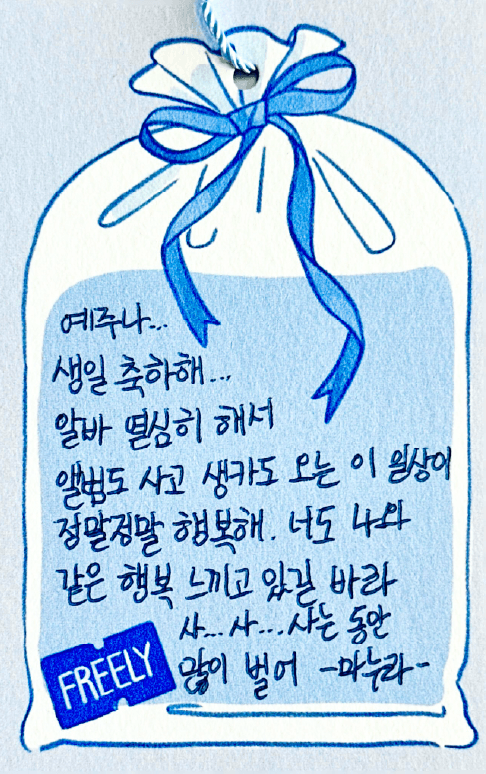 예주나...
생일 축하해...
알바 열심히 해서
앨범도 사고 생카도 오는 이 일상이
정말정말 행복해. 너도 나와
같은 행복 느끼고 있길 바라
사...사...사는 동안
많이 벌어 -마누라-
FREELY